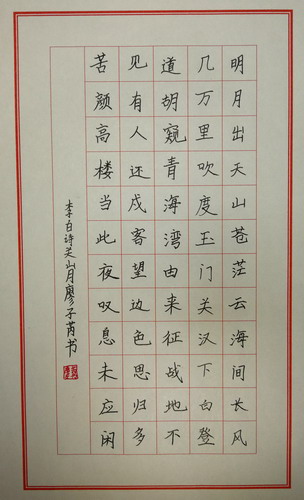 明月出天山苍茫云海间长风
几万里吹度玉门关汉下白登
道胡窥青海湾由来征战地不
见有人还戍客望边色思归多
苦颜高楼当此夜叹息未应闲
李白诗关山月廖子芮书